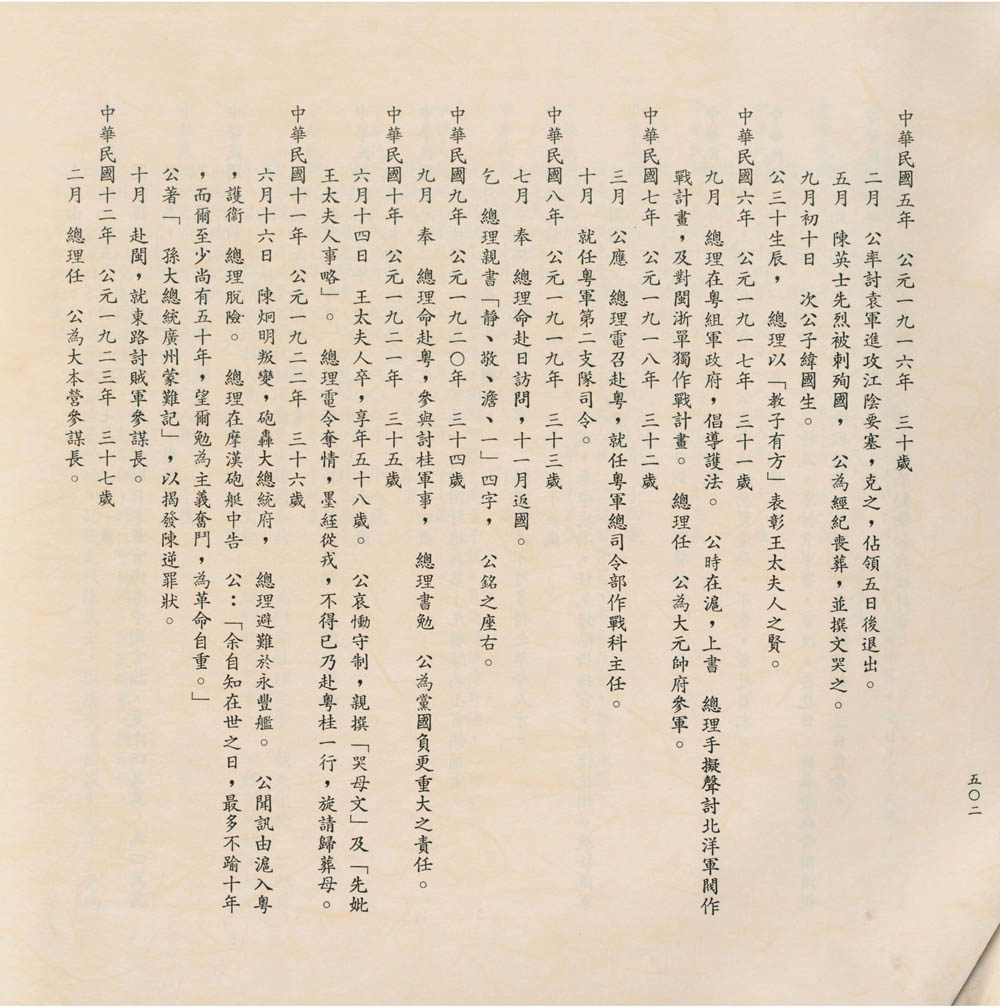 中華民國五年　公元一九一六年　三十歲
二月　公率討袁軍進攻江陰要塞，克之，佔領五日後退出。
五月　陳英士先烈被刺殉國，　公為經紀喪葬，並撰文哭之。
九月初十日　次公子緯國生。
公三十生辰，　總理以「教子有方」表彰王太夫人之賢。
中華民國六年　公元一九一七年　三十一歲
九月　總理在粵組軍政府，倡導護法。　公時在滬，上書　總理手擬聲討北洋軍閥作
戰計畫，及對閩浙單獨作戰計畫。　總理任　公為大元帥府參軍。
中華民國七年　公元一九一八年　三十二歲
三月　公應　總理電召赴粵，就任粵軍總司令部作戰科主任。
十月　就任粵軍第二支隊司令。
中華民國八年　公元一九一九年　三十三歲
七月　奉　總理命赴日訪問，十一月返國。
乞　總理親書「靜、敬、澹、一」四字，　公銘之座右。
中華民國九年　公元一九二〇年　三十四歲
九月　奉　總理命赴粵，參與討桂軍事，　總理書勉　公為黨國負更重大之責任。
中華民國十年　公元一九二一年　三十五歲
六月十四日　王太夫人卒，享年五十八歲。　公哀慟守制，親撰「哭母文」及「先妣
王太夫人事略」。　總理電令奪情，墨絰從戎，不得已乃赴粵桂一行，旋請歸葬母。
中華民國十一年　公元一九二二年　三十六歲
六月十六日　陳炯明叛變，砲轟大總統府，　總理避難於永豐艦。　公聞訊由滬入粵
，護衛　總理脫險。　總理在摩漢砲艇中告　公：「余自知在世之日，最多不踰十年
，而爾至少尚有五十年，望爾勉為主義奮鬥，為革命自重。」
公著「　孫大總統廣州蒙難記」，以揭發陳逆罪狀。
十月　赴閩，就東路討賊軍參謀長。
中華民國十二年　公元一九二三年　三十七歲
二月　總理任　公為大本營參謀長。
五〇二